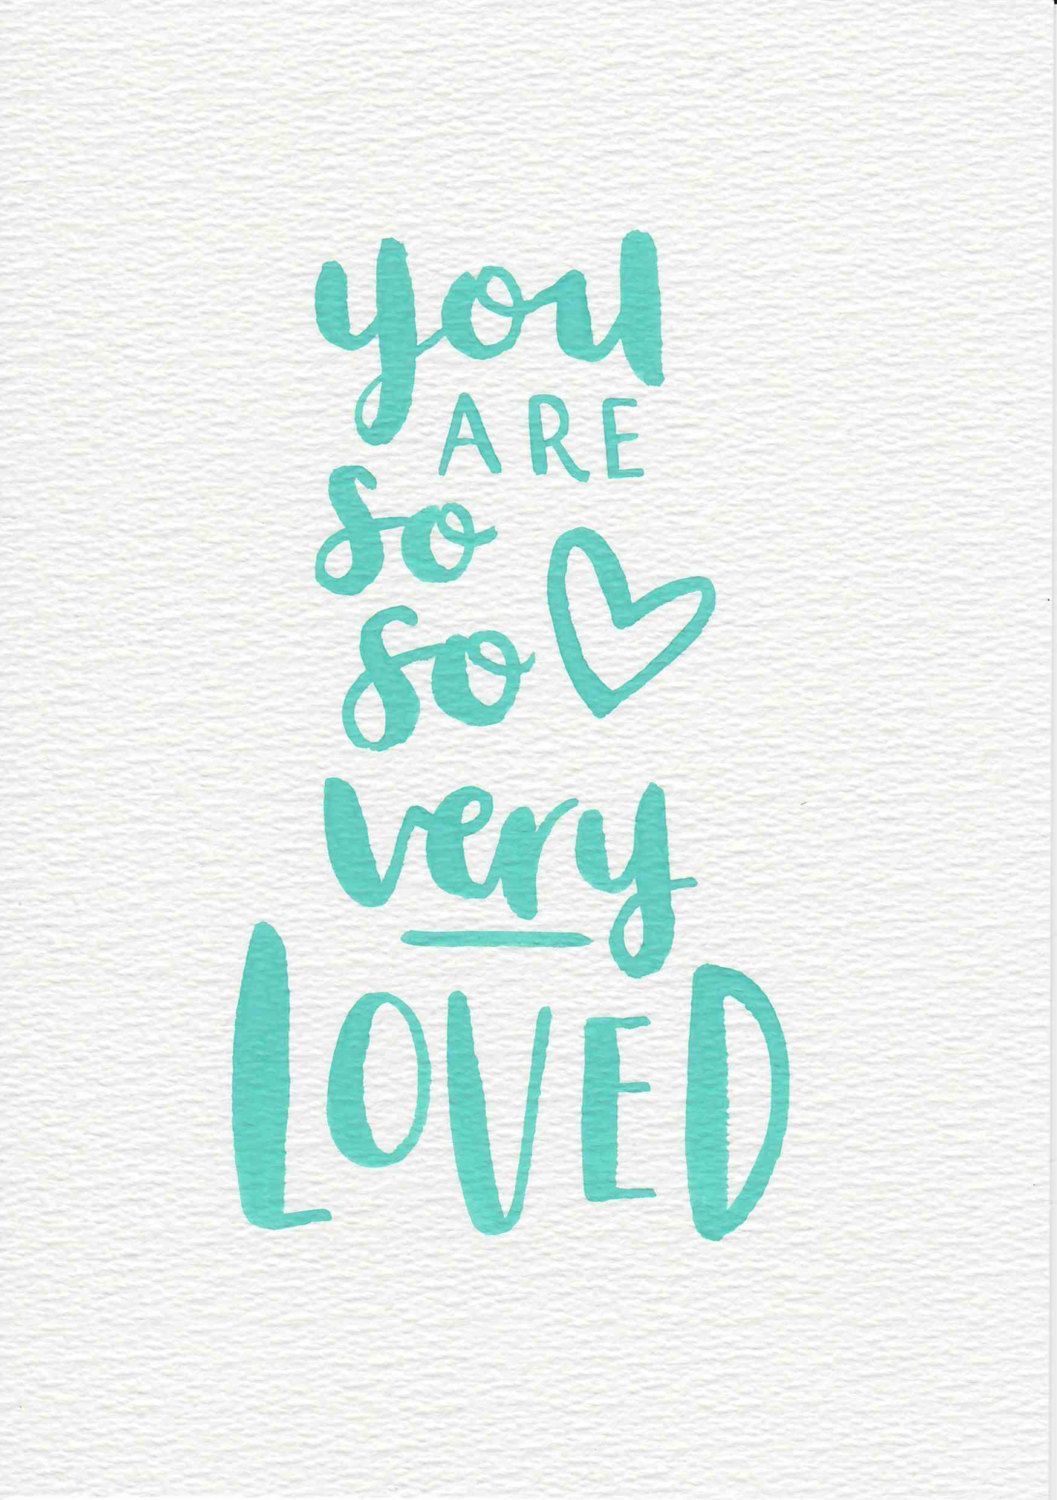 you
ARE
so
so
very
LOVED